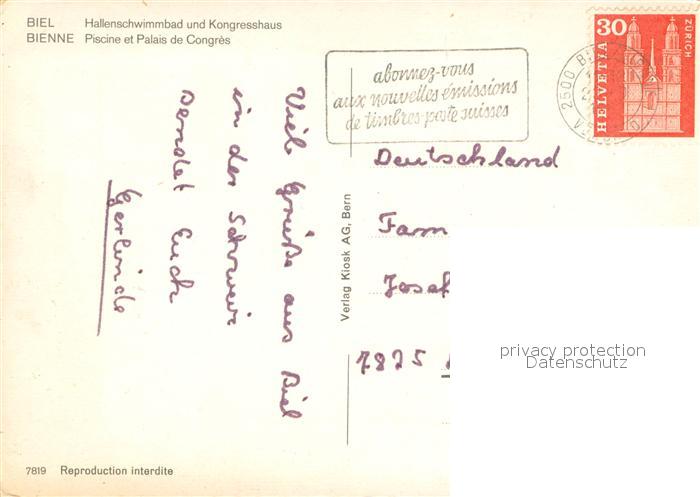 BIEL Hallenschwimmbad und Kongresshaus
BIENNE Piscine et Palais de Congrès
abonnez-vous
aux nouvelles émissions
de timbres-poste suisses
30
ZÜRICH
HELVETIA
2500 B
Viele Grüße aus Biel
in der Schweiz
sendet Euch
Gerlinde
Verlag Kiosk AG, Bern
Deutschland
Fam
Josef
7825
privacy protection
Datenschutz
7819 Reproduction interdite